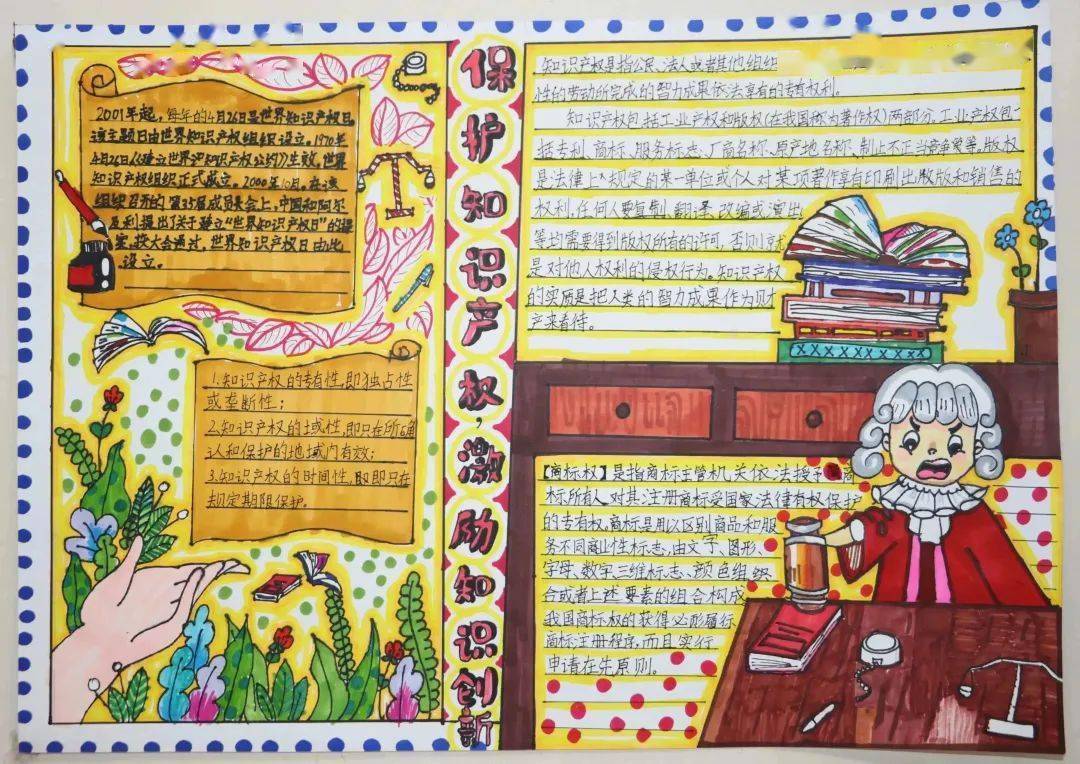 保护知识产权，激励知识创新
2001年起，每年的4月26日是世界知识产权日。
该主题日由世界知识产权组织设立。1970年
4月26日《建立世界知识产权公约》生效，世界
知识产权组织正式成立。2000年10月，在该
组织召开的第35届成员大会上，中国和阿尔
及利提出了关于建立“世界知识产权日”的提
案，按大会通过，世界知识产权日由此
设立。
1.知识产权的专有性，即独占性
或垄断性；
2.知识产权的土或性，即只在所确
认和保护的地域内有效；
3.知识产权的时间性，即只在
规定期限保护。
知识产权是指公民、法人或者其他组织
性的劳动所完成的智力成果依法享有的专有权利。
知识产权包括工业产权和版权(在我国称为著作权)两部分，工业产权包
括专利、商标、服务标志、厂商名称、原产地名称、制止不正当竞争等，版权
是法律上规定的某一单位或个人对某项著作享有印刷出版和销售的
权利，任何人要复制、翻译、改编或演出
等均需要得到版权所有的许可，否则就
是对他人权利的侵权行为。知识产权
的实质是把人类的智力成果作为财
产来看待。
【商标权】是指商标主管机关依法授予商
标所有人对其注册商标受国家法律有权保护
的专有权。商标是用以区别商品和服
务不同商业性标志，由文字、图形、
字母、数字、三维标志、颜色组织
合或者上述要素的组合构成
我国商标权的获得必形履行
商标注册程序，而且实行
申请在先原则。